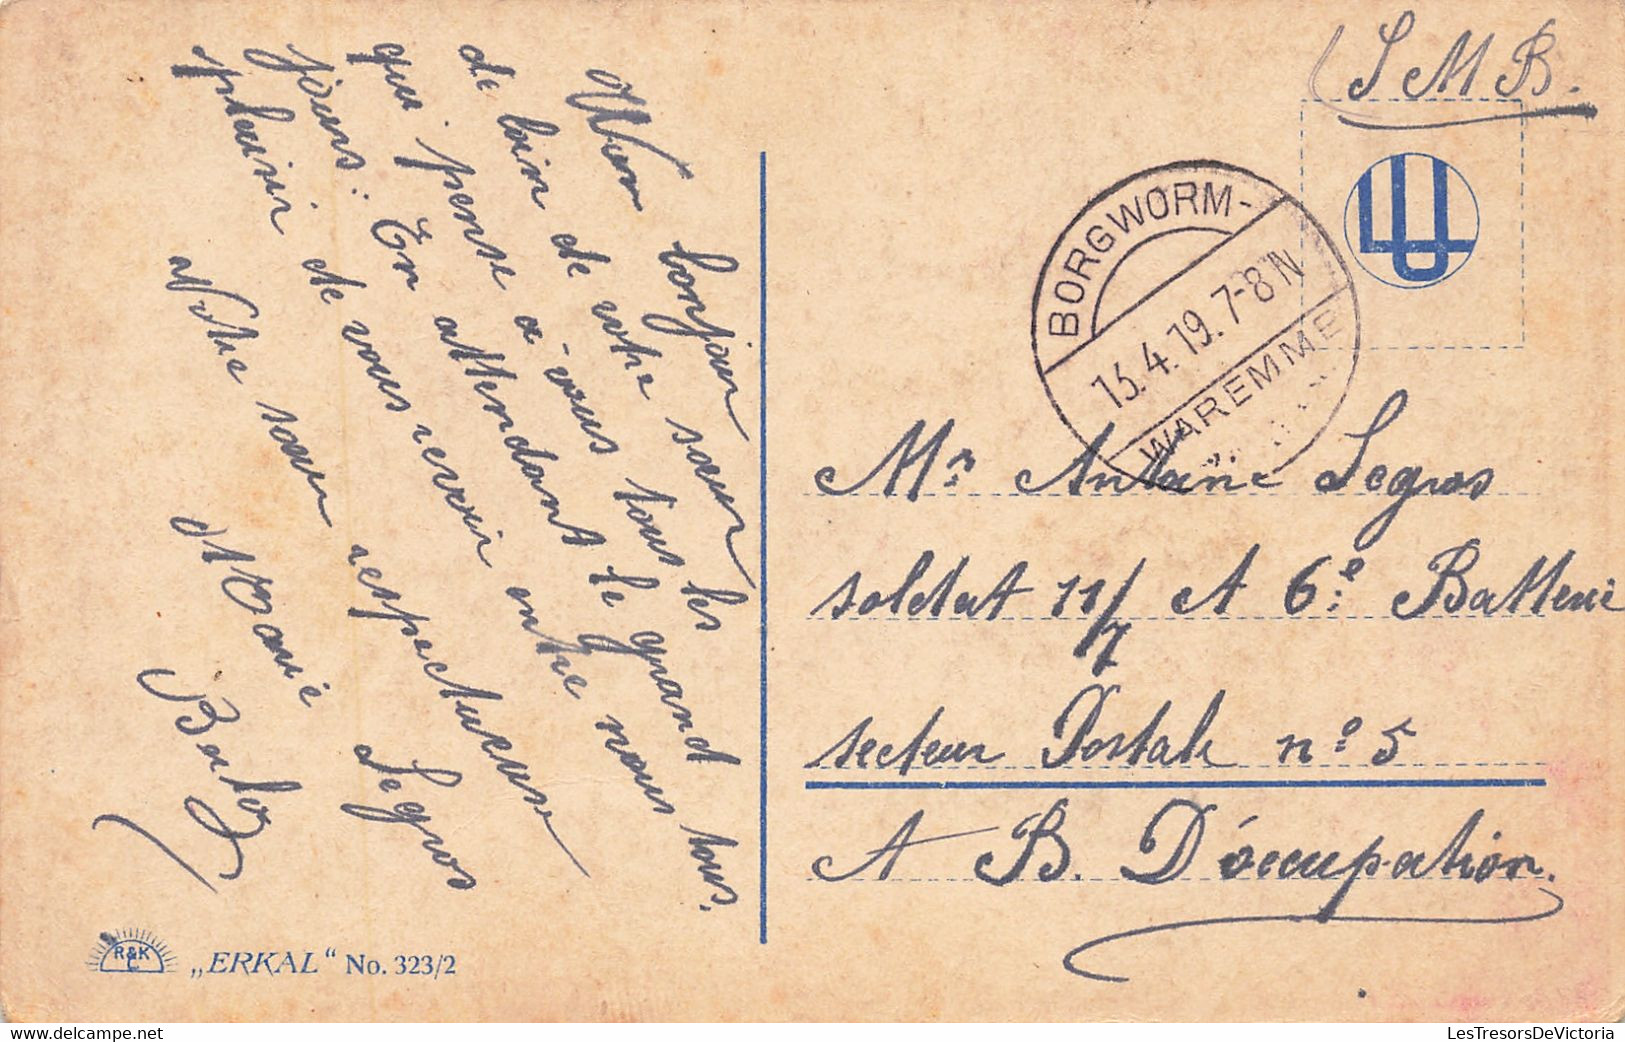 Mon bonjour
de loin de votre soeur
qui pense a-vous tous les
jours: En attendant le grand
plaisir de vous revoir entre nous tous.
Votre soeur respectueuse
Marie Legros
S M B.
BORGWORM-
15.4.19.7-8 N
WAREMME
Mr Antoine Legros
soldat 11/7 A 6e Batterie
secteur Postale no 5
A B. D'óccupation.
R&K
L
„ERKAL“ No. 323/2
LesTresorsDeVictoria